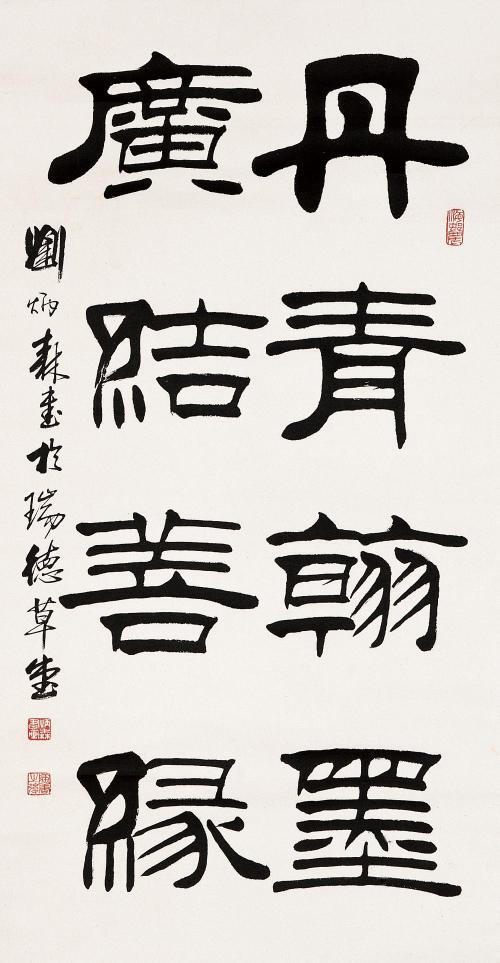 丹青翰墨
廣結善緣
劉炳森書於瑞德草堂